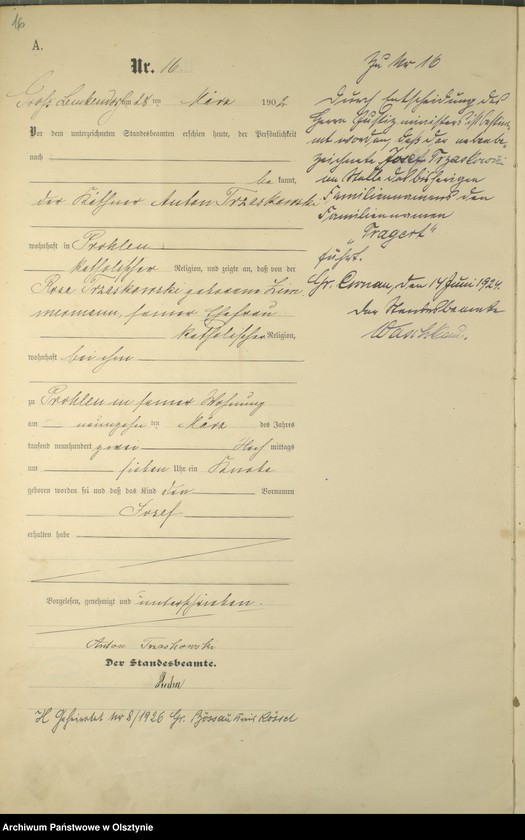 16
A.
Nr. 16
Groß Lemkendorf am 28 ten März 1902
Vor dem unterzeichneten Standesbeamten erschien heute, der Persönlichkeit
nach
be kannt,
der Käthner Anton Trzaskowski
wohnhaft in Prohlen
katholischer Religion, und zeigte an, daß von der
Rosa Trzaskowski geborene Zim
mermann, seiner Ehefrau
katholischer Religion,
wohnhaft bei ihm
zu Prohlen in seiner Wohnung
am neunzehn ten März des Jahres
tausend neunhundert zwei Nach mittags
um sieben Uhr ein Knabe
geboren worden sei und daß das Kind den Vornamen
Josef
erhalten habe
Vorgelesen, genehmigt und unterschrieben.
Anton Traskowski
Der Standesbeamte.
H Geheiratet Nr 8/1926 Gr. Bössau Kreis Rössel
Zu Nr 16
Durch Entscheidung des
Herrn Justizministers ist bestim
mt worden, daß der nebenbe
zeichnete Josef Trzaskowski
an Stelle des bisherigen
Familiennamens den
Familiennamen
"Tragert"
führt.
Gr. den 14 Juni 1924.
Der Standesbeamte
Archiwum Państwowe w Olsztynie